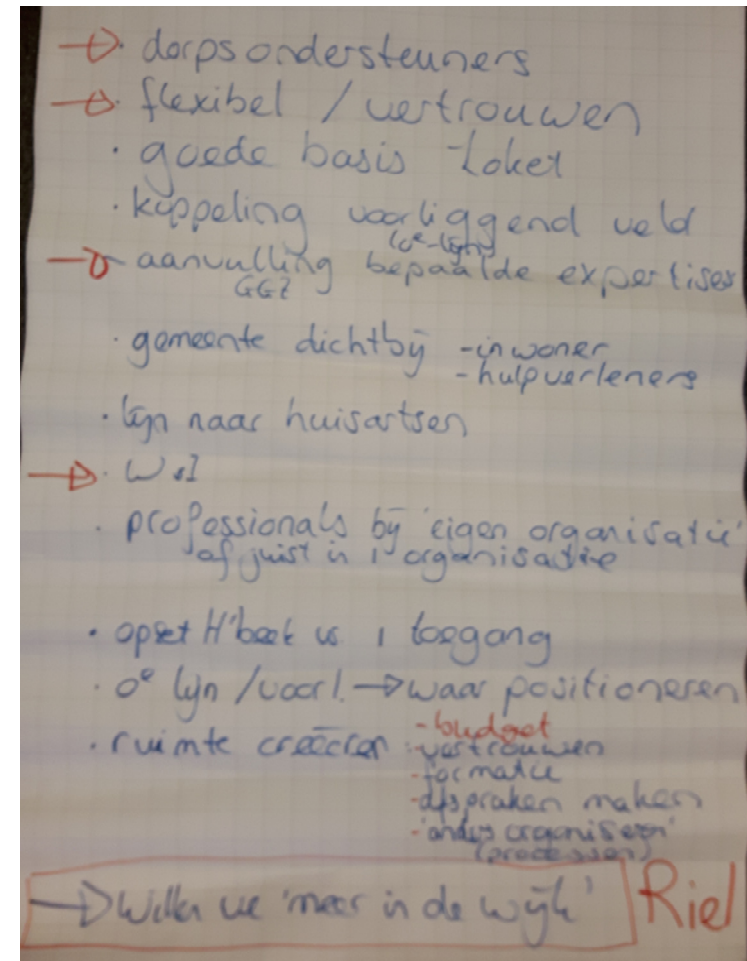 → • dorpsondersteuners
→ • flexibel / vertrouwen
• goede basis - loket
• koppeling voorliggend veld
(0e-lijn)
→ aanvulling bepaalde expertises
GGZ
• gemeente dichtbij - inwoner
- hulpverleners
• lijn naar huisartsen
→ • W&I
• professionals bij 'eigen organisatie'
of juist in 1 organisatie
• opzet H'beek vs 1 toegang
• 0e lijn / voorl. → waar positioneren
• ruimte creëeren - budget
- vertrouwen
- formatie
- afspraken maken
- 'anders organiseren'
(processen)
→ Willen we 'meer in de wijk' Riel